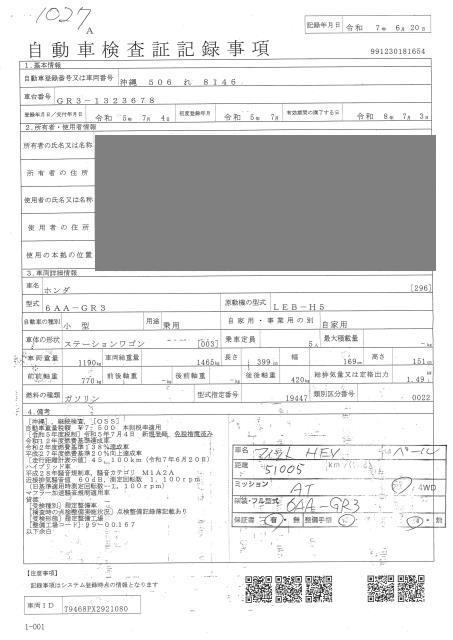 1027
A
記録年月日 令和 7年 6月 20日
自動車検査証記録事項
991230181654
1.基本情報
自動車登録番号又は車両番号 沖縄 506 れ 8146
車台番号 GR3-1323678
登録年月日/交付年月日 令和 5年 7月 4日 初度登録年月 令和 5年 7月 有効期間の満了する日 令和 8年 7月 3日
2.所有者・使用者情報
所有者の氏名又は名称
所有者の住所
使用者の氏名又は名称
使用者の住所
使用の本拠の位置
3.車両詳細情報
車名 ホンダ [296]
型式 6AA-GR3 原動機の型式 LEB-H5
自動車の種別 小型 用途 乗用 自家用・事業用の別 自家用
車体の形状 ステーションワゴン [003] 乗車定員 5人 最大積載量 -kg
車両重量 1190kg 車両総重量 1465kg 長さ 399cm 幅 169cm 高さ 151cm
前前軸重 770kg 前後軸重 -kg 後前軸重 -kg 後後軸重 420kg 総排気量又は定格出力 1.49
燃料の種類 ガソリン 型式指定番号 19447 類別区分番号 0022
4.備考
[沖縄],継続検査,[OSS]
自動車重量税額 ¥7,500 本則税率適用
令和12年度燃費基準達成車
平成27年度燃費基準20%向上達成車
[走行距離計表示値] 45,100km (令和7年6月20日)
ハイブリッド車
平成28年騒音規制車,騒音カテゴリ M1A2A
近接排気騒音値 60dB,測定回転数 1,100rpm
マフラー加速騒音規制適用車
[受検種別] 指定整備車
[検査時の点検整備実施状況] 点検整備記録簿記載あり
[受検形態] 指定整備工場
[整備工場コード] 99-00167
以下余白
車名 HEV
距離 51005 km
ミッション AT 4WD
6AA-GR3
保証書 有・無 整備手帳 ・無
[注意事項]
記録事項はシステム登録時点の情報となります
車両ID 79468PX2921080
1-001